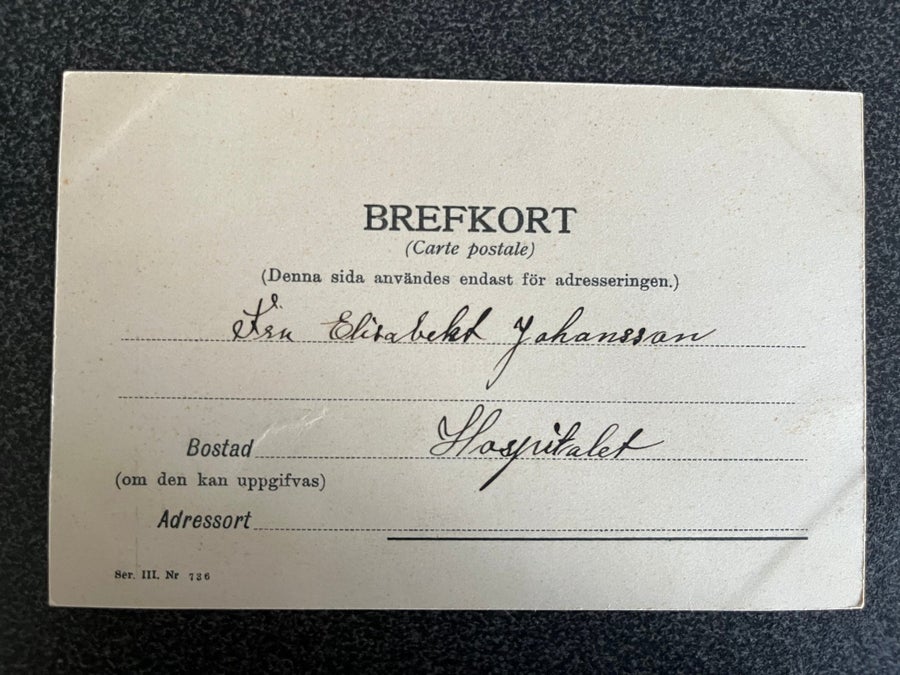 BREFKORT
(Carte postale)
(Denna sida användes endast för adresseringen.)
Fru Elisabekt Johansson
Bostad Hospitalet
(om den kan uppgifvas)
Adressort
Ser. III. Nr 736